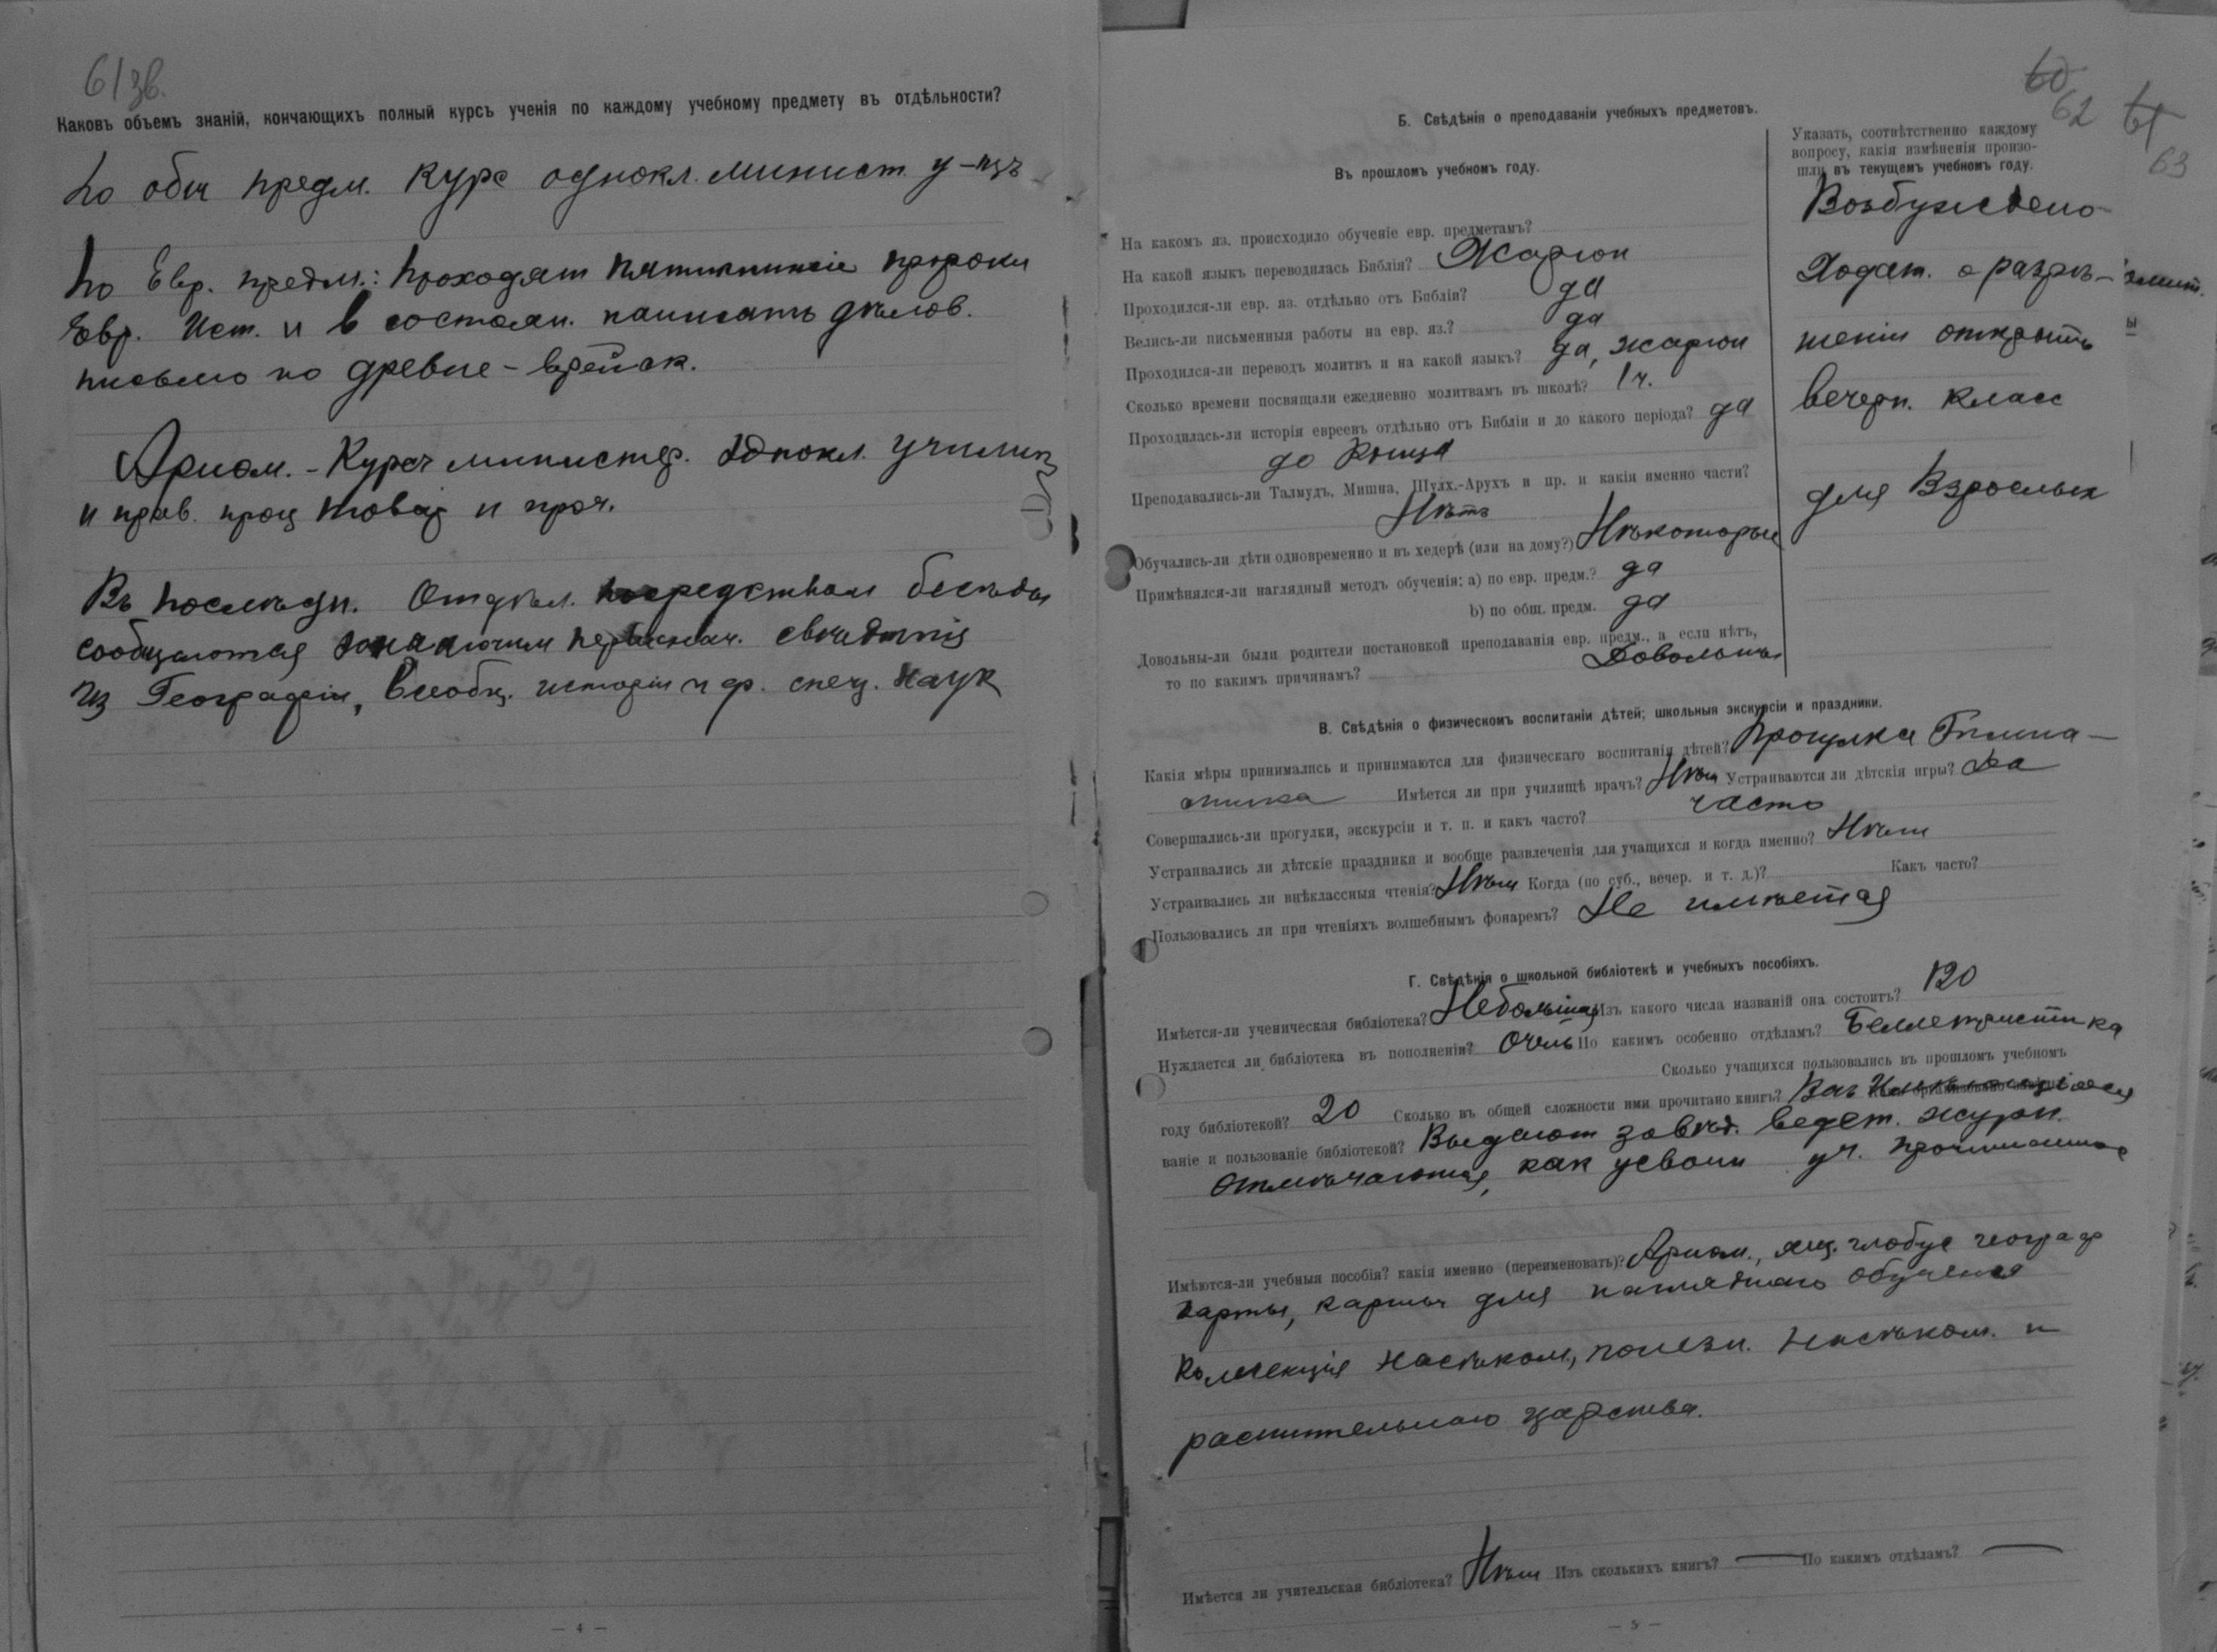 61зв.
Каковъ объемъ знаній, кончающихъ полный курсъ ученія по каждому учебному предмету въ отдѣльности?
По общ предм. Курс однокл. Минист. у-щъ
По Евр. предм.: Проходят пятикнижіе пророки
Евр. Ист. и в состоян. написать дѣлов.
письмо по древне-еврейск.
Арифм. - Курсъ министер. Однокл. Училищ
и прав. проц товар и проч.
Въ послѣдн. Отдѣл. посредством бесѣды
сообщаются первонач. свѣдѣнія
Из Географіи, Всеобщ. исторіи и др. спец. наук
— 4 —
60
62
61
63
Б. Свѣдѣнія о преподаваніи учебныхъ предметовъ.
Въ прошломъ учебномъ году.
Указать, соотвѣтственно каждому
вопросу, какія измѣненія произо-
шли въ текущемъ учебномъ году.
На какомъ яз. происходило обученіе евр. предметамъ?
На какой языкъ переводилась Библія? Жаргон
Проходился-ли евр. яз. отдѣльно отъ Библіи? да
Велись-ли письменныя работы на евр. яз.? да
Проходился-ли переводъ молитвъ и на какой языкъ? да, жаргон
Сколько времени посвящали ежедневно молитвамъ въ школѣ? 1 ч.
Проходилась-ли исторія евреевъ отдѣльно отъ Библіи и до какого періода? да
до конца
Преподавались-ли Талмудъ, Мишна, Шулх.-Арухъ и пр. и какія именно части?
Нѣтъ
Обучались-ли дѣти одновременно и въ хедерѣ (или на дому?) Нѣкоторые
Примѣнялся-ли наглядный методъ обученія: а) по евр. предм.? да
b) по общ. предм. да
Довольны-ли были родители постановкой преподаванія евр. предм., а если нѣтъ,
то по какимъ причинамъ? Довольны
Возбуждено
Ходат. о разрѣ-
шеніи открыть
вечерн. класс
для Взрослых
В. Свѣдѣнія о физическомъ воспитаніи дѣтей; школьныя экскурсіи и праздники.
Какія мѣры принимались и принимаются для физическаго воспитанія дѣтей? Прогулка Гимна-
стика Имѣется ли при училищѣ врачъ? Нѣт Устраиваются ли дѣтскія игры? Да
Совершались-ли прогулки, экскурсіи и т. п. и какъ часто? часто
Устраивались ли дѣтскіе праздники и вообще развлеченія для учащихся и когда именно? Нѣт
Устраивались ли внѣклассныя чтенія? Нѣт Когда (по суб., вечер. и т. д.)? Какъ часто?
Пользовались ли при чтеніяхъ волшебнымъ фонаремъ? Не имѣется
Г. Свѣдѣнія о школьной библіотекѣ и учебныхъ пособіяхъ.
Имѣется-ли ученическая библіотека? Небольшая Изъ какого числа названій она состоитъ? 120
Нуждается ли библіотека въ пополненіи? Очень По какимъ особенно отдѣламъ? Беллетристика
Сколько учащихся пользовались въ прошломъ учебномъ
году библіотекой? 20 Сколько въ общей сложности ими прочитано книгъ? Всѣ
ваніе и пользованіе библіотекой? Выдают завѣд. ведет. журн.
Отмѣчаются, как усвоили уч. прочитанное
Имѣются-ли учебныя пособія? какія именно (переименовать)? Арифм. ящ. глобус географ
Карты, картины для нагляднаго обученія
Коллекція Насѣком., полезн. Насѣком. и
растительнаго царства.
Имѣется ли учительская библіотека? Нѣт Изъ сколькихъ книгъ? — По какимъ отдѣламъ? —
— 5 —